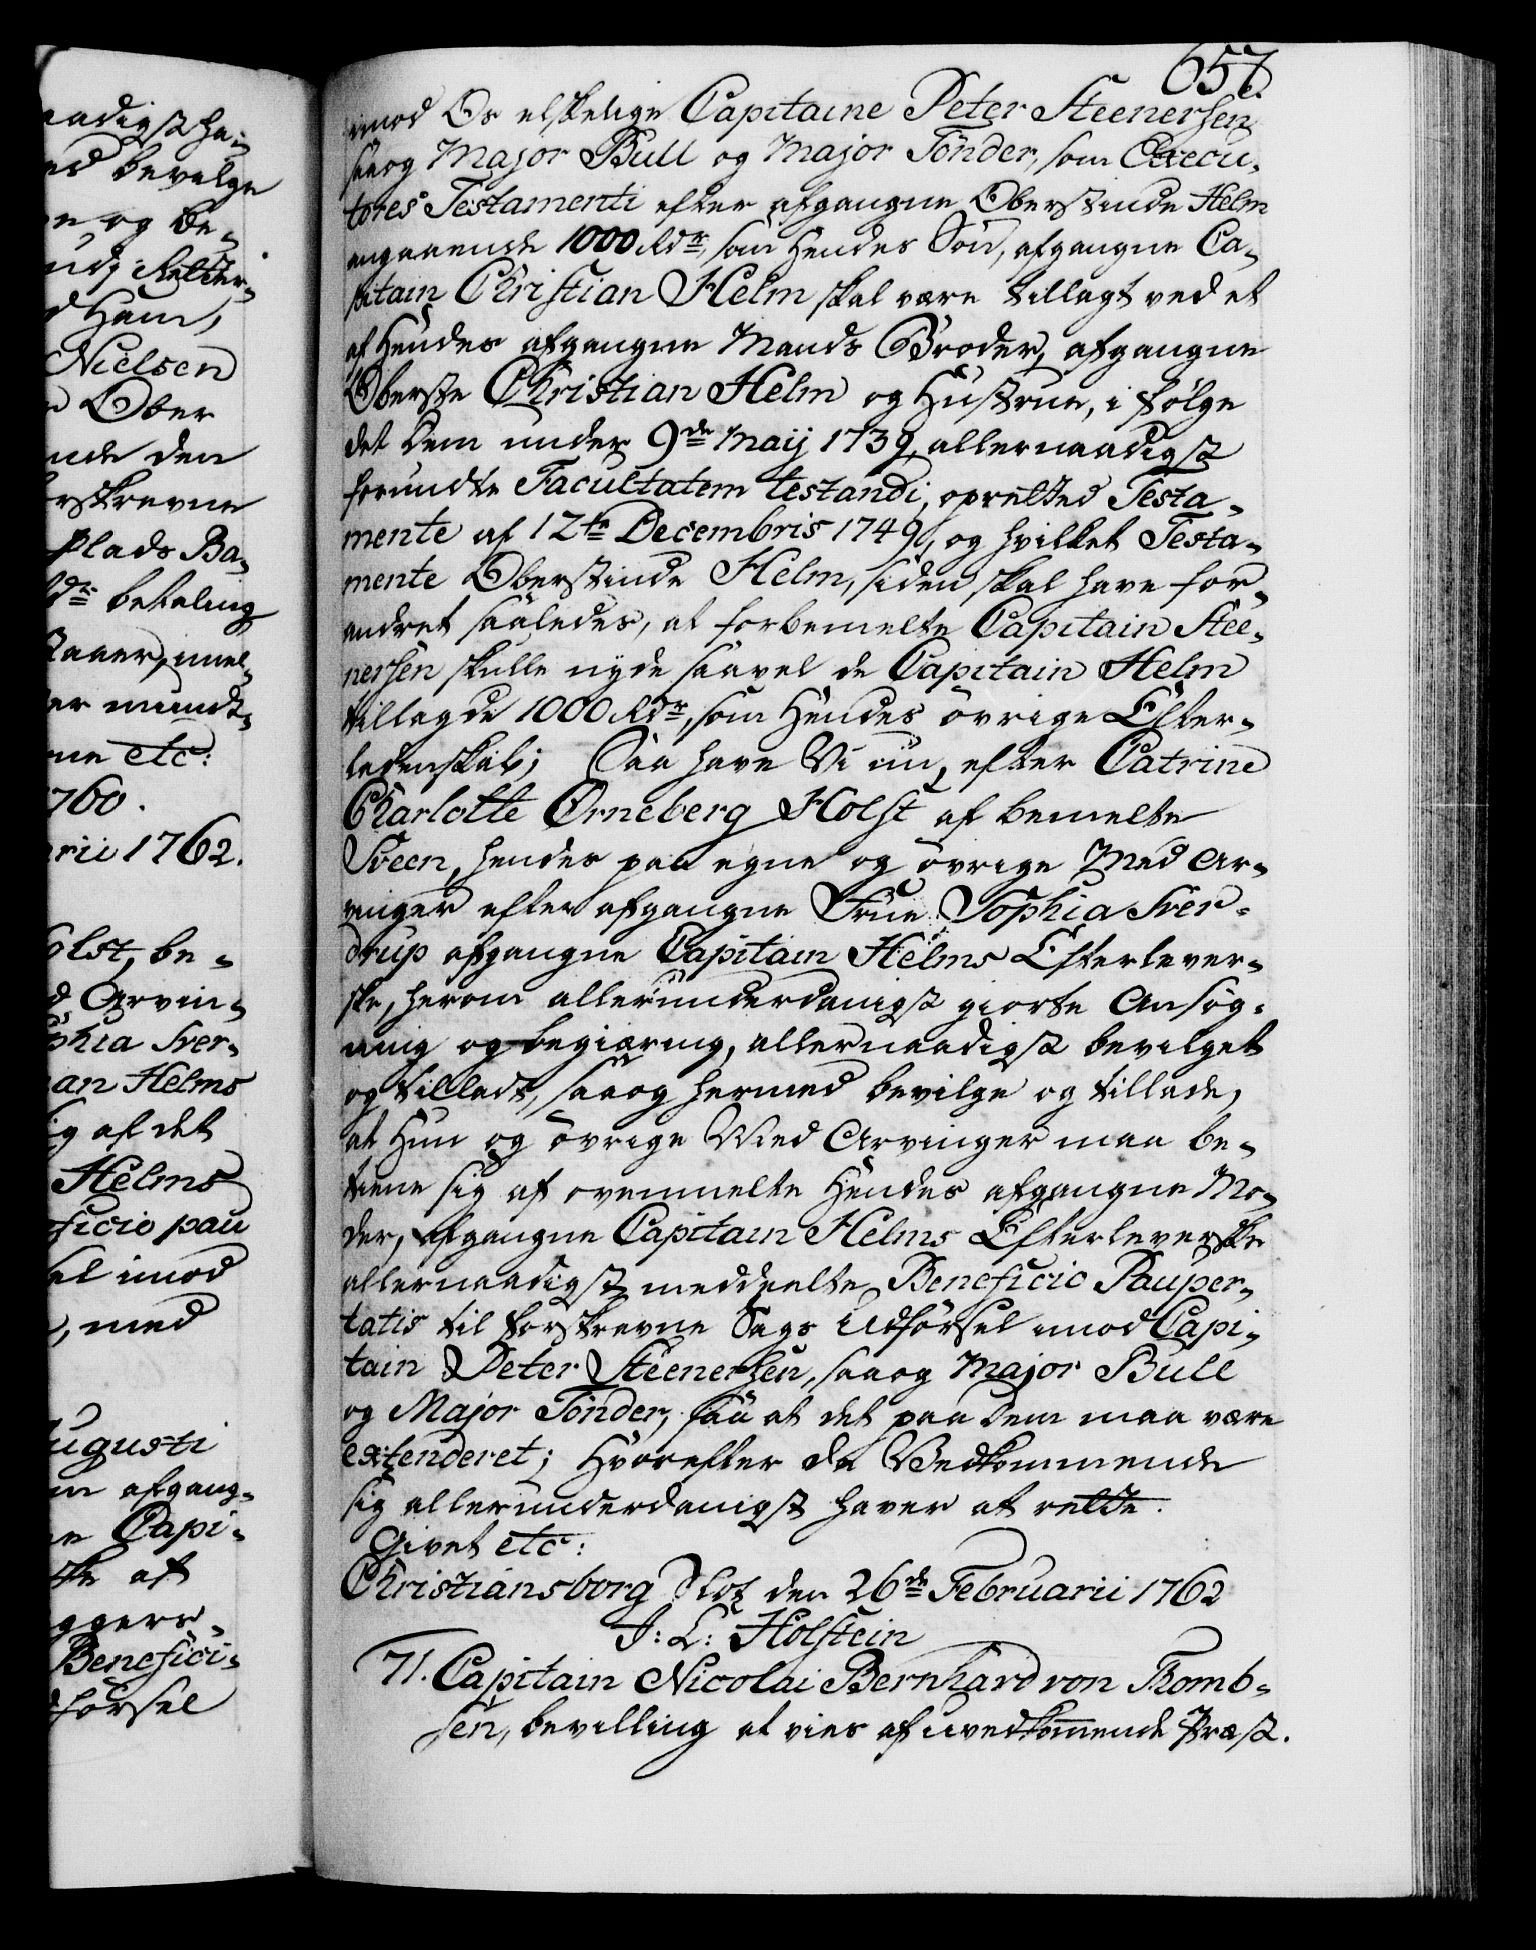 aadigst ha-
ed bevilge
en og be-
nd, Retter-
d Ham,
Nielsen
Ober
ende den
rskrevne
Plads Ba-
dr betaling
er mundt-
rne etc:
1760.
arii 1762.
olst, be-
d Arvin-
phia Sver-
an Helms
ig af det
Helms
ficio pau
el imod
, med
Augusti
en afgang-
ne Capi-
ske at
Benefici-
dførsel
657.
imod Os elskelige Capitaine Peter Steenersen
saaog Major Bull og Major Tönder, som Execu-
tores Testamenti efter afgangne Oberstinde Helm
angaaende 1000 Rdr, som Hendes Sön, afgangne Ca-
pitain Christian Helm skal være tillagt ved et
af Hendes afgangne Mands Broder, afgangne
Oberste Christian Helm og Hustrue, i følge
det Dem under 9de Maij 1739 allernaadigst
forundte Facultatem testandi, opretted Testa-
mente af 12te Decembris 1749, og hvilket Testa-
mente Oberstinde Helm, siden skal have for-
andret saaledes, at forbemelte Capitain Stee-
nersen skulle nyde saavel de Capitain Helm
tillagde 1000 Rdr, som Hendes övrige Efter-
ladenskab; Saa have Vi nu, efter Catrine
Charlotte Örneberg Holst af bemelte
Sveen, hendes paa egne og övrige Med Ar-
vinger efter afgangne Frue Sophia Sver-
drup afgangne Capitain Helms Efterlever-
ske, herom allerunderdanigst giorte Ansög-
ning og begiæring, allernaadigst bevilget
og tilladt, saaog hermed bevilge og tillade,
at Hun og övrige Med Arvinger maa be-
tiene sig af ovenmelte Hendes afgangne Mo-
der, afgangne Capitain Helms Efterleverske
allernaadigst meddeelte Beneficio Pauper-
tatis til forskrevne Sags Udførsel imod Capi-
tain Peter Steenersen, saaog Major Bull
og Major Tönder, saa at det paa Dem maa være
extenderet; Hvorefter de Vedkommende
sig allerunderdanigst haver at rette.
Givet etc:
Christiansborg Slot den 26de Februarii 1762
J: L: Holstein
71. Capitain Nicolai Bernhard von Tromb-
sen, bevilling at vies af uvedkommende Præst.